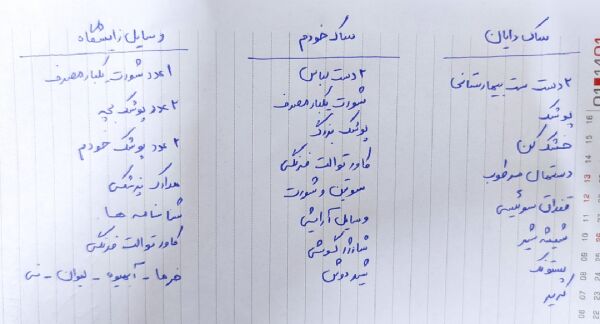 ساک دایان
۲ دست ست بیمارستانی
پوشک
خشک کن
دستمال مرطوب
قنداق سوئیسی
شیشه شیر
پستونک
کریر
ساک خودم
۲ دست لباس
شورت یکبار مصرف
پوشک بزرگ
کاور توالت فرنگی
سوتین و شورت
وسایل آرایشی
شارژر گوشی
شیردوش
وسایل زایشگاه
۱ عدد شورت یکبار مصرف
۲ عدد پوشک بچه
۲ عدد پوشک خودم
مدارک پزشکی
شناسنامه ها
کاور توالت فرنگی
خرما - آبمیوه - لیوان - نی
01
1401
06 07 08 09 10 11 12 13 14 15 16
22 23 24